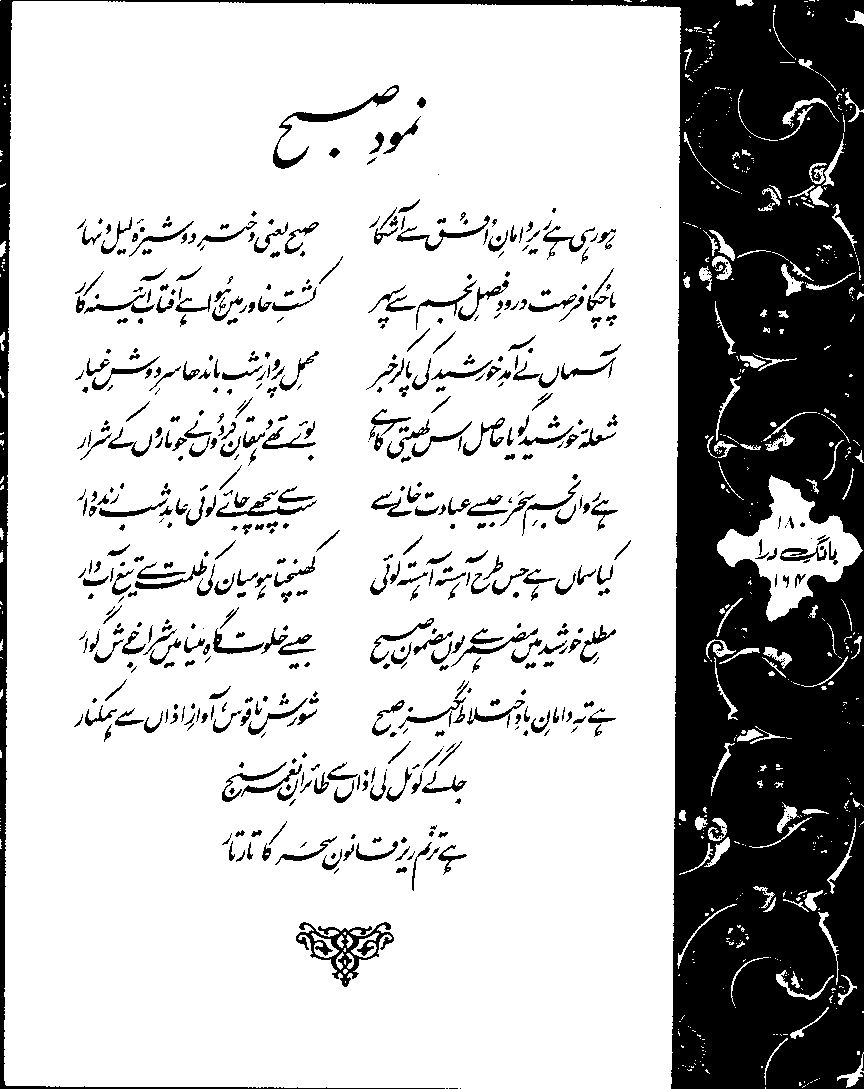 نمودِ صبح
ہو رہی ہے زیرِ دامانِ اُفُق سے آشکار صبح یعنی دخترِ دوشیزۂ لیل و نہار
پا چُکا فرصت درودِ فصلِ انجم سے سپہر کشتِ خاور میں ہُوا ہے آفتاب آئینہ کار
آسماں نے آمدِ خورشید کی پا کر خبر محملِ پروازِ شب باندھا سرِ دوشِ غبار
شعلۂ خورشید گویا حاصل اس کھیتی کا ہے بوئے تھے دہقانِ گردُوں نے جو تاروں کے شرار
ہے رواں نجمِ سحَر، جیسے عبادت خانے سے سب سے پیچھے جائے کوئی عابدِ شب زندہ دار
کیا سماں ہے جس طرح آہستہ آہستہ کوئی کھینچتا ہو میان کی ظلمت سے تیغِ آب دار
مطلعِ خورشید میں مضمر ہے یوں مضمونِ صبح جیسے خلوت گاہِ مینا میں شرابِ خوش گوار
ہے تہِ دامانِ بادِ اختلاط انگیزِ صبح شورشِ ناقوس، آوازِ اذاں سے ہمکنار
جاگے کوئل کی اذاں سے طائرانِ نغمہ سنج
ہے ترنّم ریز قانونِ سحَر کا تار تار
۱۸۰
بانگِ درا
۱۶۴